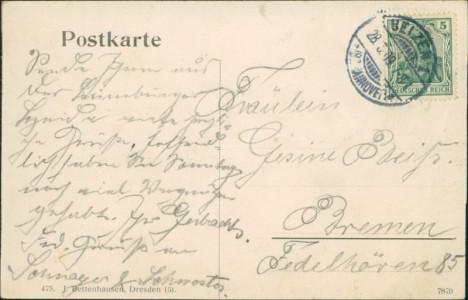 Postkarte
Sende Ihnen aus
der Lüneburger
herzliche Grüße, hoffent-
lich haben Sie Sonntag
noch viel Vergnügen
gehabt. Ihr
Frd. Grüsse an
Schwager & Schwester
Fräulein
Gesine
Bremen
Fedelhören 85
UELZEN
HANNOVER
5
DEUTSCHES REICH
475. J. Bettenhausen, Dresden (5).
7870